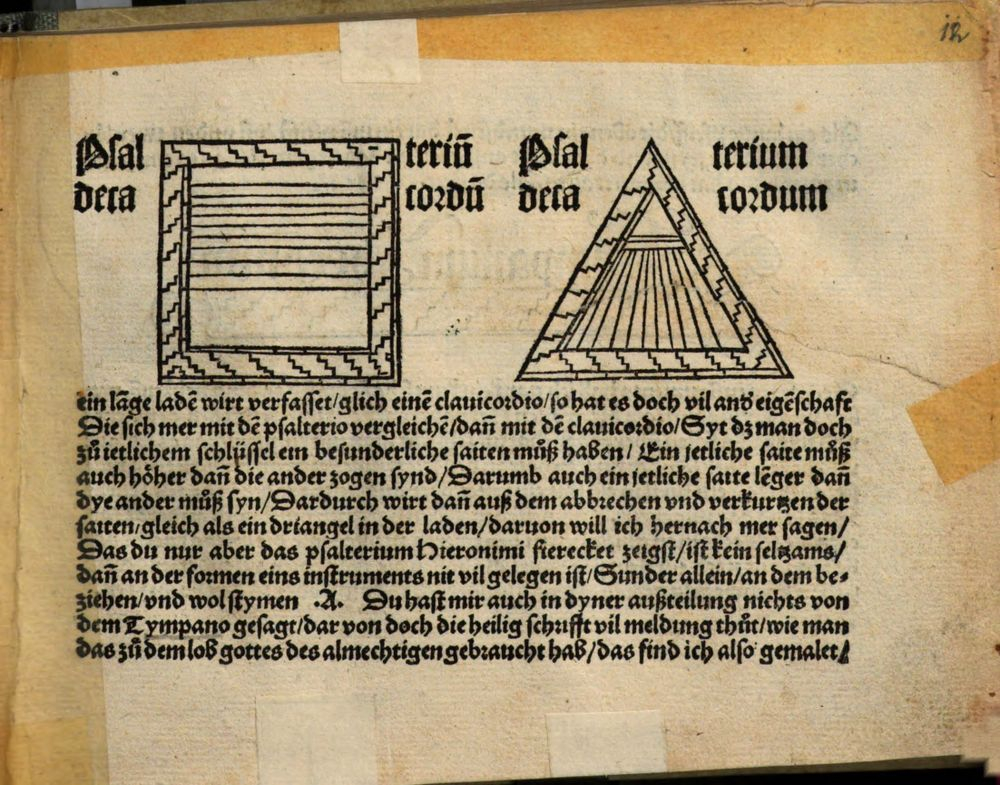 12
Psal teriū Psal terium
deca cordū deca cordum
ein lāge ladē wirt verfasset/glich einē clauicordio/so hat es doch vil anđ eigēschaft
Die sich mer mit dē psalterio vergleichē/dañ mit dē clauicordio/Syt dz man doch
zů ietlichem schlüssel ein besunderliche saiten můß haben/ Ein jetliche saite můß
auch höher dañ die ander zogen synd/Darumb auch ein jetliche saite lēger dañ
dye ander můß syn/Dardurch wirt dañ auß dem abbrechen vnd verkurtzen der
saiten/gleich als ein driangel in der laden/daruon will ich hernach mer sagen/
Das du nur aber das psalterium Hieronimi fierecket zeigst/ist kein seltzams/
dañ an der formen eins instruments nit vil gelegen ist/Sunder allein/an dem be⸗
ziehen/vnd wol stymen .A. Du hast mir auch in dyner außteilung nichts von
dem Tympano gesagt/dar von doch die heilig schrifft vil meldung thůt/wie man
das zů dem lob gottes des almechtigen gebraucht hab/das find ich also gemalet/